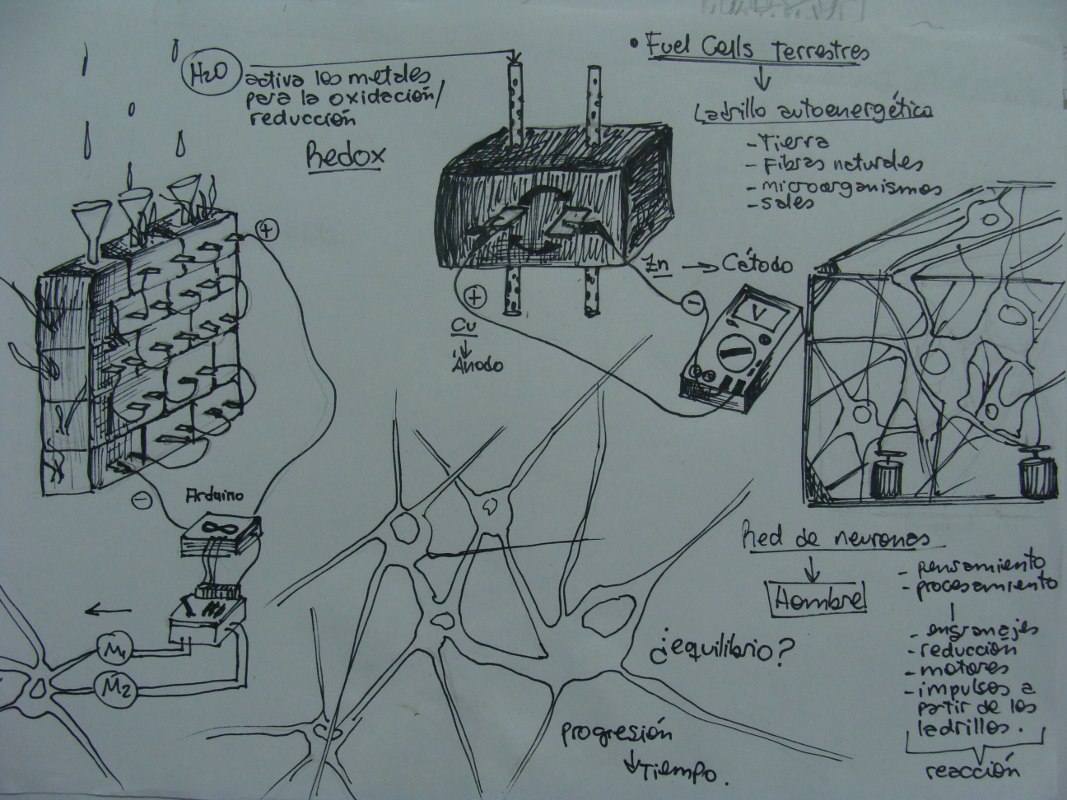 H2O
activa los metales
para la oxidación/
reducción
Redox
• Fuel Cells terrestres
Ladrillo autoenergético
- Tierra
- Fibras naturales
- microorganismos
- sales
+
+
Cu
Ánodo
Zn → Cátodo
-
V
-
Arduino
M1
M2
Red de neuronas
Hombre
- pensamiento
- procesamiento
- engranajes
- reducción
- motores
- impulsos a
partir de los
ladrillos.
reacción
¿equilibrio?
progresión
Tiempo.